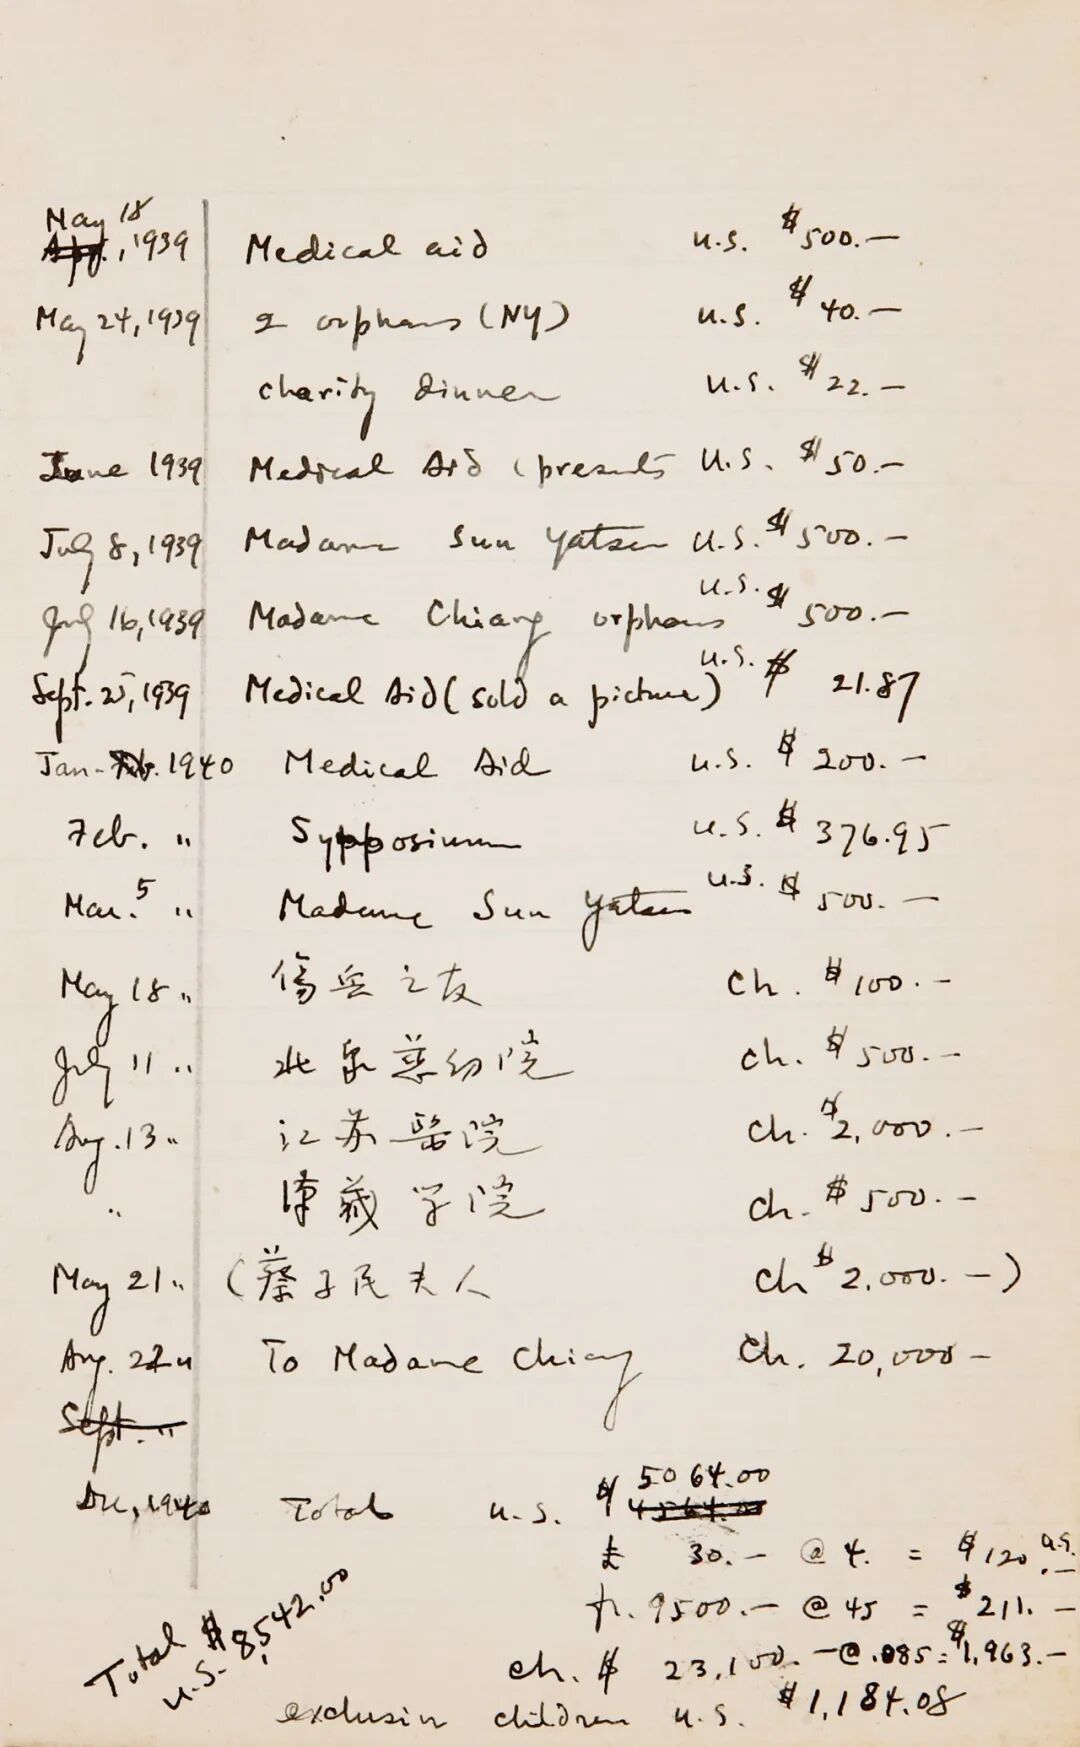 May 18
Apr., 1939 Medical aid U.S. $500.—
May 24, 1939 2 orphans (NY) U.S. $40.—
charity dinner U.S. $22.—
June 1939 Medical Aid (presents U.S. $50.—
July 8, 1939 Madame Sun Yatsen U.S. $500.—
July 16, 1939 Madame Chiang orphans U.S. $500.—
Sept. 25, 1939 Medical Aid (sold a picture) U.S. $21.87
Jan-Feb. 1940 Medical Aid U.S. $200.—
Feb. " Sypposium U.S. $376.95
Mar. 5 " Madame Sun Yatsen U.S. $500.—
May 18 " 傷兵之友 Ch. $100.—
July 11 " 北泉慈幼院 Ch. $500.—
Aug. 13 " 江苏醫院 Ch. $2,000.—
" 漢藏学院 Ch. $500.—
May 21 " (蔡孑民夫人 Ch $2,000.—)
Aug. 22 " To Madame Chiang Ch. 20,000—
Sept. "
5064.00
Dec, 1940 Total U.S. $4564.00
£ 30.— @ 4. = $120.— U.S.
fr. 9500.— @ 45 = $211.—
Ch. $ 23,100.— @ .085 = $1,963.—
exclusiv children U.S. $1,184.08
Total $8,542.00
U.S.